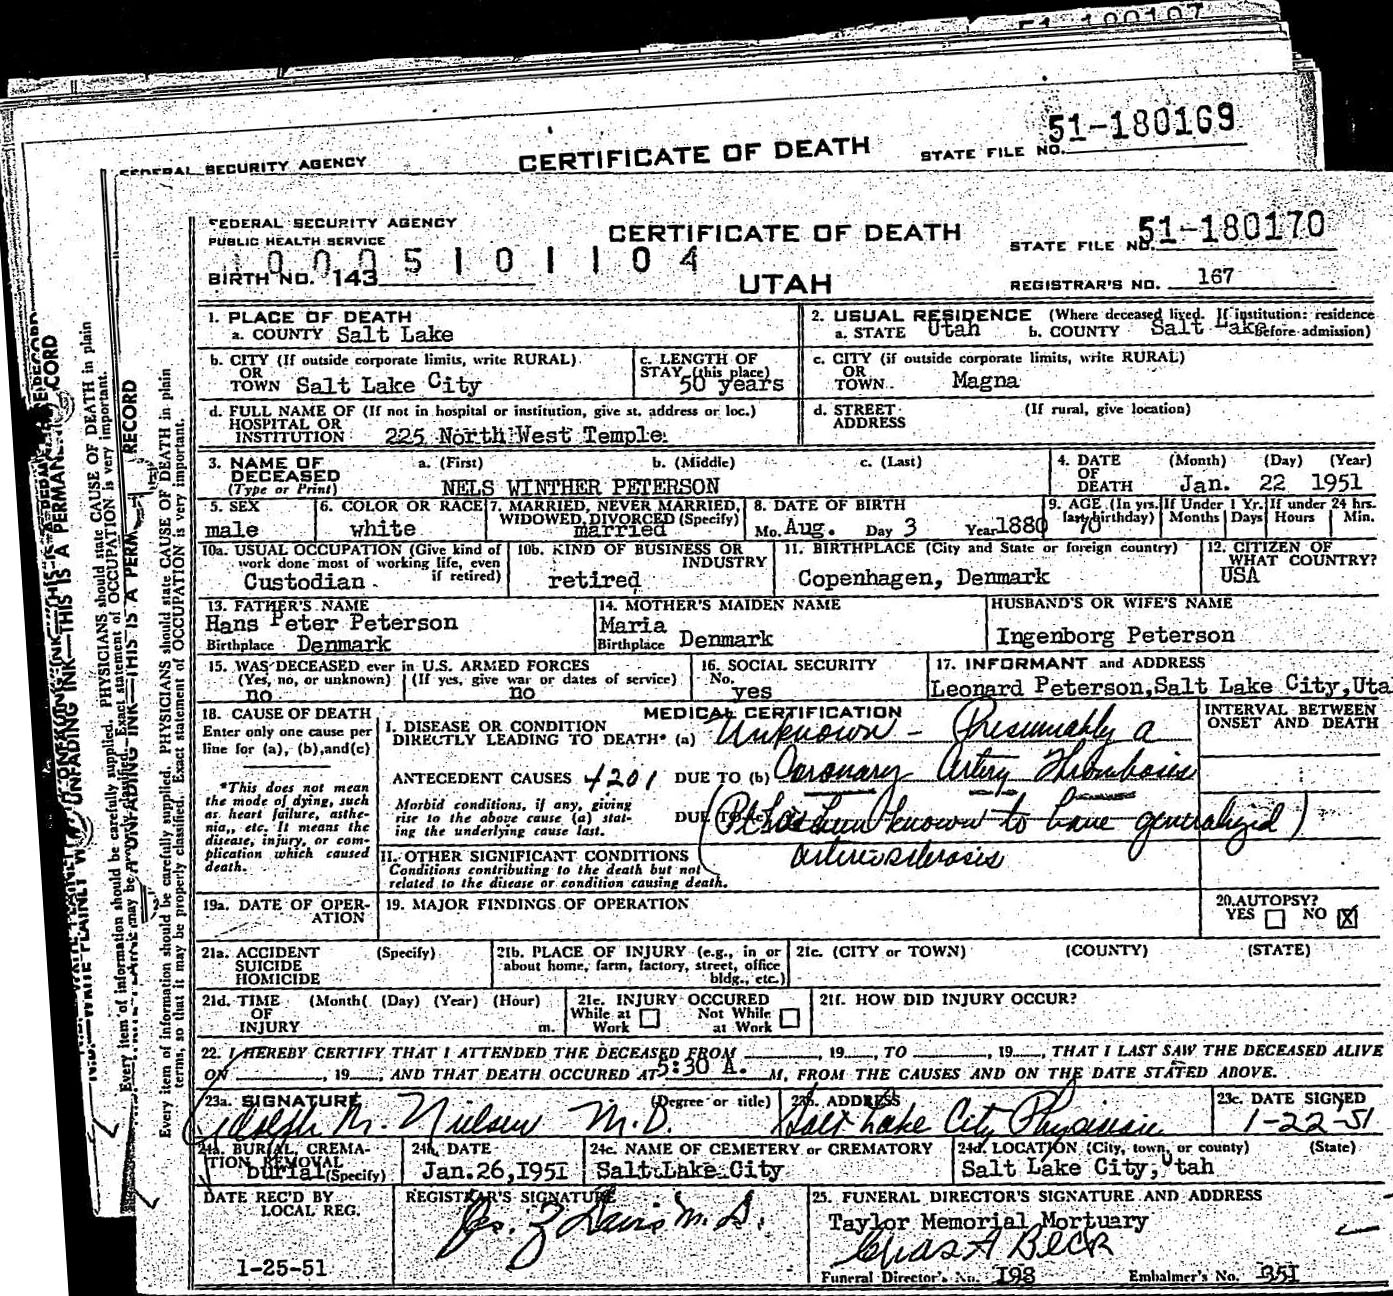 51-100107
51-180169
CERTIFICATE OF DEATH
STATE FILE NO.
FEDERAL SECURITY AGENCY
FEDERAL SECURITY AGENCY
PUBLIC HEALTH SERVICE
CERTIFICATE OF DEATH
STATE FILE NO. 51-180170
1 0 0 0 5 1 0 1 1 0 4
BIRTH NO. 143
UTAH
REGISTRAR'S NO. 167
1. PLACE OF DEATH
a. COUNTY Salt Lake
2. USUAL RESIDENCE (Where deceased lived. If institution: residence before admission)
a. STATE Utah b. COUNTY Salt Lake
b. CITY (If outside corporate limits, write RURAL)
OR
TOWN Salt Lake City
c. LENGTH OF
STAY (this place)
50 years
c. CITY (if outside corporate limits, write RURAL)
OR
TOWN. Magna
d. FULL NAME OF (If not in hospital or institution, give st. address or loc.)
HOSPITAL OR
INSTITUTION 225 North West Temple
d. STREET (If rural, give location)
ADDRESS
3. NAME OF a. (First) b. (Middle) c. (Last)
DECEASED
(Type or Print) NELS WINTHER PETERSON
4. DATE (Month) (Day) (Year)
OF
DEATH Jan. 22 1951
5. SEX
male
6. COLOR OR RACE
white
7. MARRIED, NEVER MARRIED,
WIDOWED, DIVORCED (Specify)
married
8. DATE OF BIRTH
Mo. Aug. Day 3 Year 1880
9. AGE (In yrs. last birthday) 70
If Under 1 Yr. Months Days
If under 24 hrs. Hours Min.
10a. USUAL OCCUPATION (Give kind of
work done most of working life, even
if retired)
Custodian
10b. KIND OF BUSINESS OR
INDUSTRY
retired
11. BIRTHPLACE (City and State or foreign country)
Copenhagen, Denmark
12. CITIZEN OF
WHAT COUNTRY?
USA
13. FATHER'S NAME
Hans Peter Peterson
Birthplace Denmark
14. MOTHER'S MAIDEN NAME
Maria
Birthplace Denmark
HUSBAND'S OR WIFE'S NAME
Ingenborg Peterson
15. WAS DECEASED ever in U.S. ARMED FORCES
(Yes, no, or unknown) (If yes, give war or dates of service)
no no
16. SOCIAL SECURITY
No.
yes
17. INFORMANT and ADDRESS
Leonard Peterson, Salt Lake City, Uta
18. CAUSE OF DEATH
Enter only one cause per
line for (a), (b), and (c)
*This does not mean
the mode of dying, such
as heart failure, asthe-
nia,, etc. It means the
disease, injury, or com-
plication which caused
death.
MEDICAL CERTIFICATION
INTERVAL BETWEEN
ONSET AND DEATH
I. DISEASE OR CONDITION
DIRECTLY LEADING TO DEATH* (a) Unknown - Presumably a
ANTECEDENT CAUSES 4201 DUE TO (b) Coronary Artery Thrombosis
Morbid conditions, if any, giving
rise to the above cause (a) stat-
ing the underlying cause last.
DUE TO (Pt has been known to have generalized)
arteriosclerosis
II. OTHER SIGNIFICANT CONDITIONS
Conditions contributing to the death but not
related to the disease or condition causing death.
19a. DATE OF OPER-
ATION
19. MAJOR FINDINGS OF OPERATION
20. AUTOPSY?
YES NO X
21a. ACCIDENT (Specify)
SUICIDE
HOMICIDE
21b. PLACE OF INJURY (e.g., in or
about home, farm, factory, street, office
bldg., etc.)
21c. (CITY or TOWN) (COUNTY) (STATE)
21d. TIME (Month( (Day) (Year) (Hour)
OF
INJURY m.
21e. INJURY OCCURED
While at Work Not While at Work
21f. HOW DID INJURY OCCUR?
22. I HEREBY CERTIFY THAT I ATTENDED THE DECEASED FROM , 19 , TO , 19 , THAT I LAST SAW THE DECEASED ALIVE
ON , 19 , AND THAT DEATH OCCURED AT 5:30 A. M, FROM THE CAUSES AND ON THE DATE STATED ABOVE.
23a. SIGNATURE (Degree or title)
Adolph M. Nielsen M.D.
23b. ADDRESS
Salt Lake City Physician
23c. DATE SIGNED
1-22-51
24a. BURIAL, CREMA-
TION REMOVAL
burial (Specify)
24b. DATE
Jan. 26, 1951
24c. NAME OF CEMETERY or CREMATORY
Salt Lake City
24d. LOCATION (City, town, or county) (State)
Salt Lake City, Utah
DATE REC'D BY
LOCAL REG.
1-25-51
REGISTRAR'S SIGNATURE
25. FUNERAL DIRECTOR'S SIGNATURE AND ADDRESS
Taylor Memorial Mortuary
Chas A Beck
Funeral Director's No. 198 Embalmer's No. 351
Every item of information should be carefully supplied. PHYSICIANS should state CAUSE OF DEATH in plain
terms, so that it may be properly classified. Exact statement of OCCUPATION is very important.